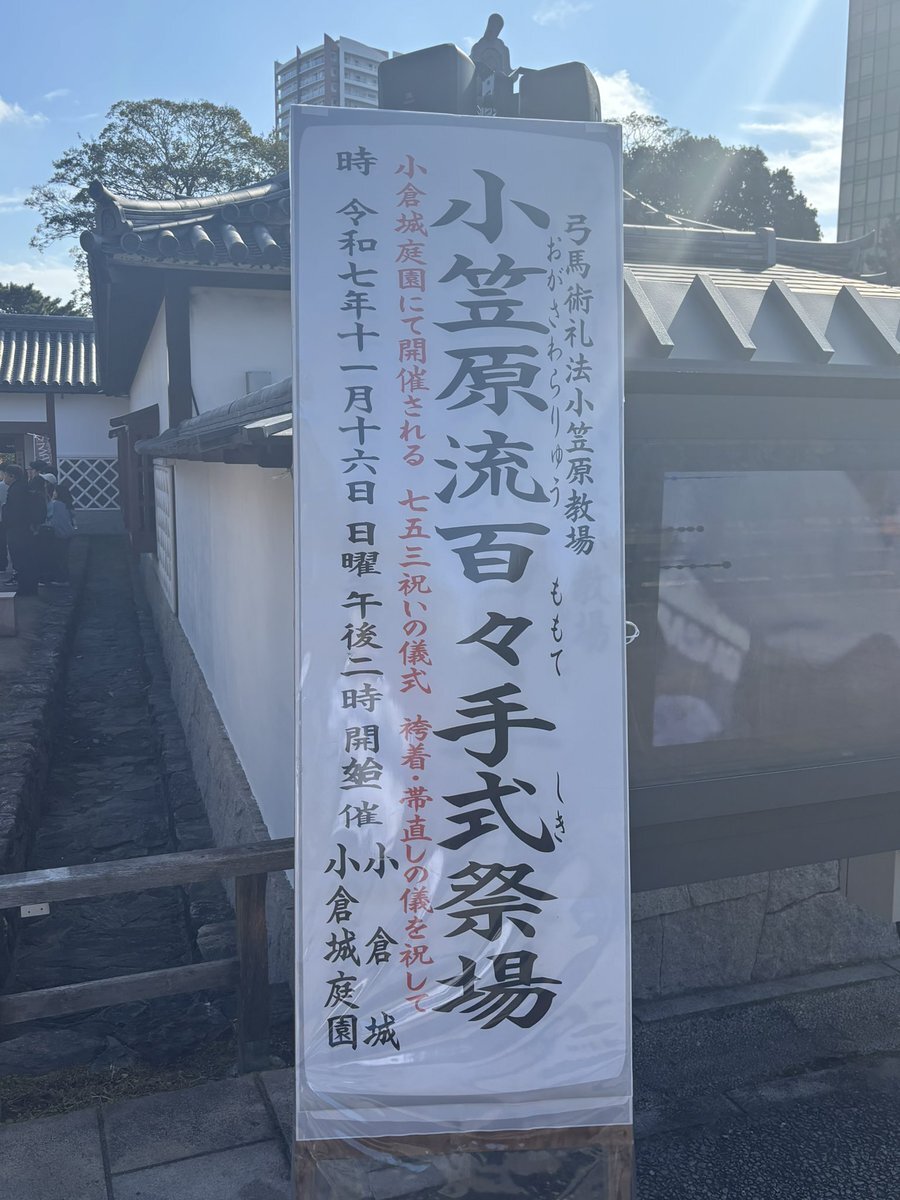 弓馬術礼法小笠原教場
おがさわらりゅう ももて しき
小笠原流百々手式祭場
小倉城庭園にて開催される 七五三祝いの儀式 袴着・帯直しの儀を祝して
時 令和七年十一月十六日 日曜 午後二時 開始
催 小倉城
小倉城庭園